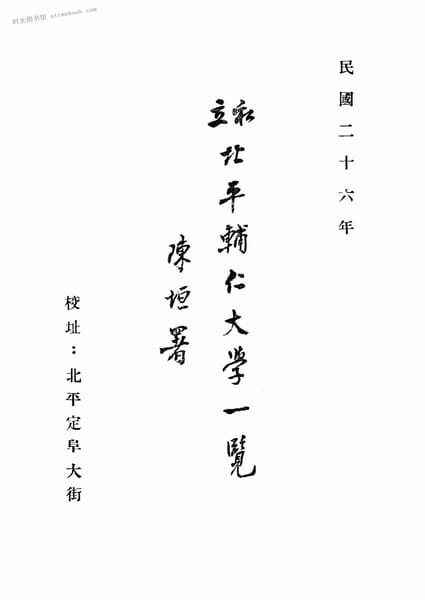 时光图书馆 stimebook.com
民國二十六年
私立北平輔仁大学一覽
陳垣署
校址：北平定阜大街